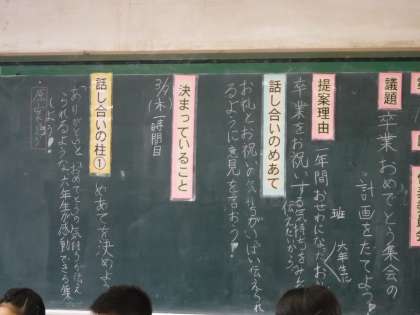 議題
卒業おめでとう集会の
計画をたてよう
提案理由
一年間おせわになったお
班
六年生に
卒業をお祝いする気持ちをみんなで
伝えたいから。
話し合いのめあて
お礼とお祝いの気持ちがいっぱい伝えられ
るように意見を言おう!
決まっていること
(木)一時間目
話し合いの柱①
めあてを決めよ
ありがとうと、おめでとうの気持ちが伝え
られるような、六年生が感動できる集
しよう!